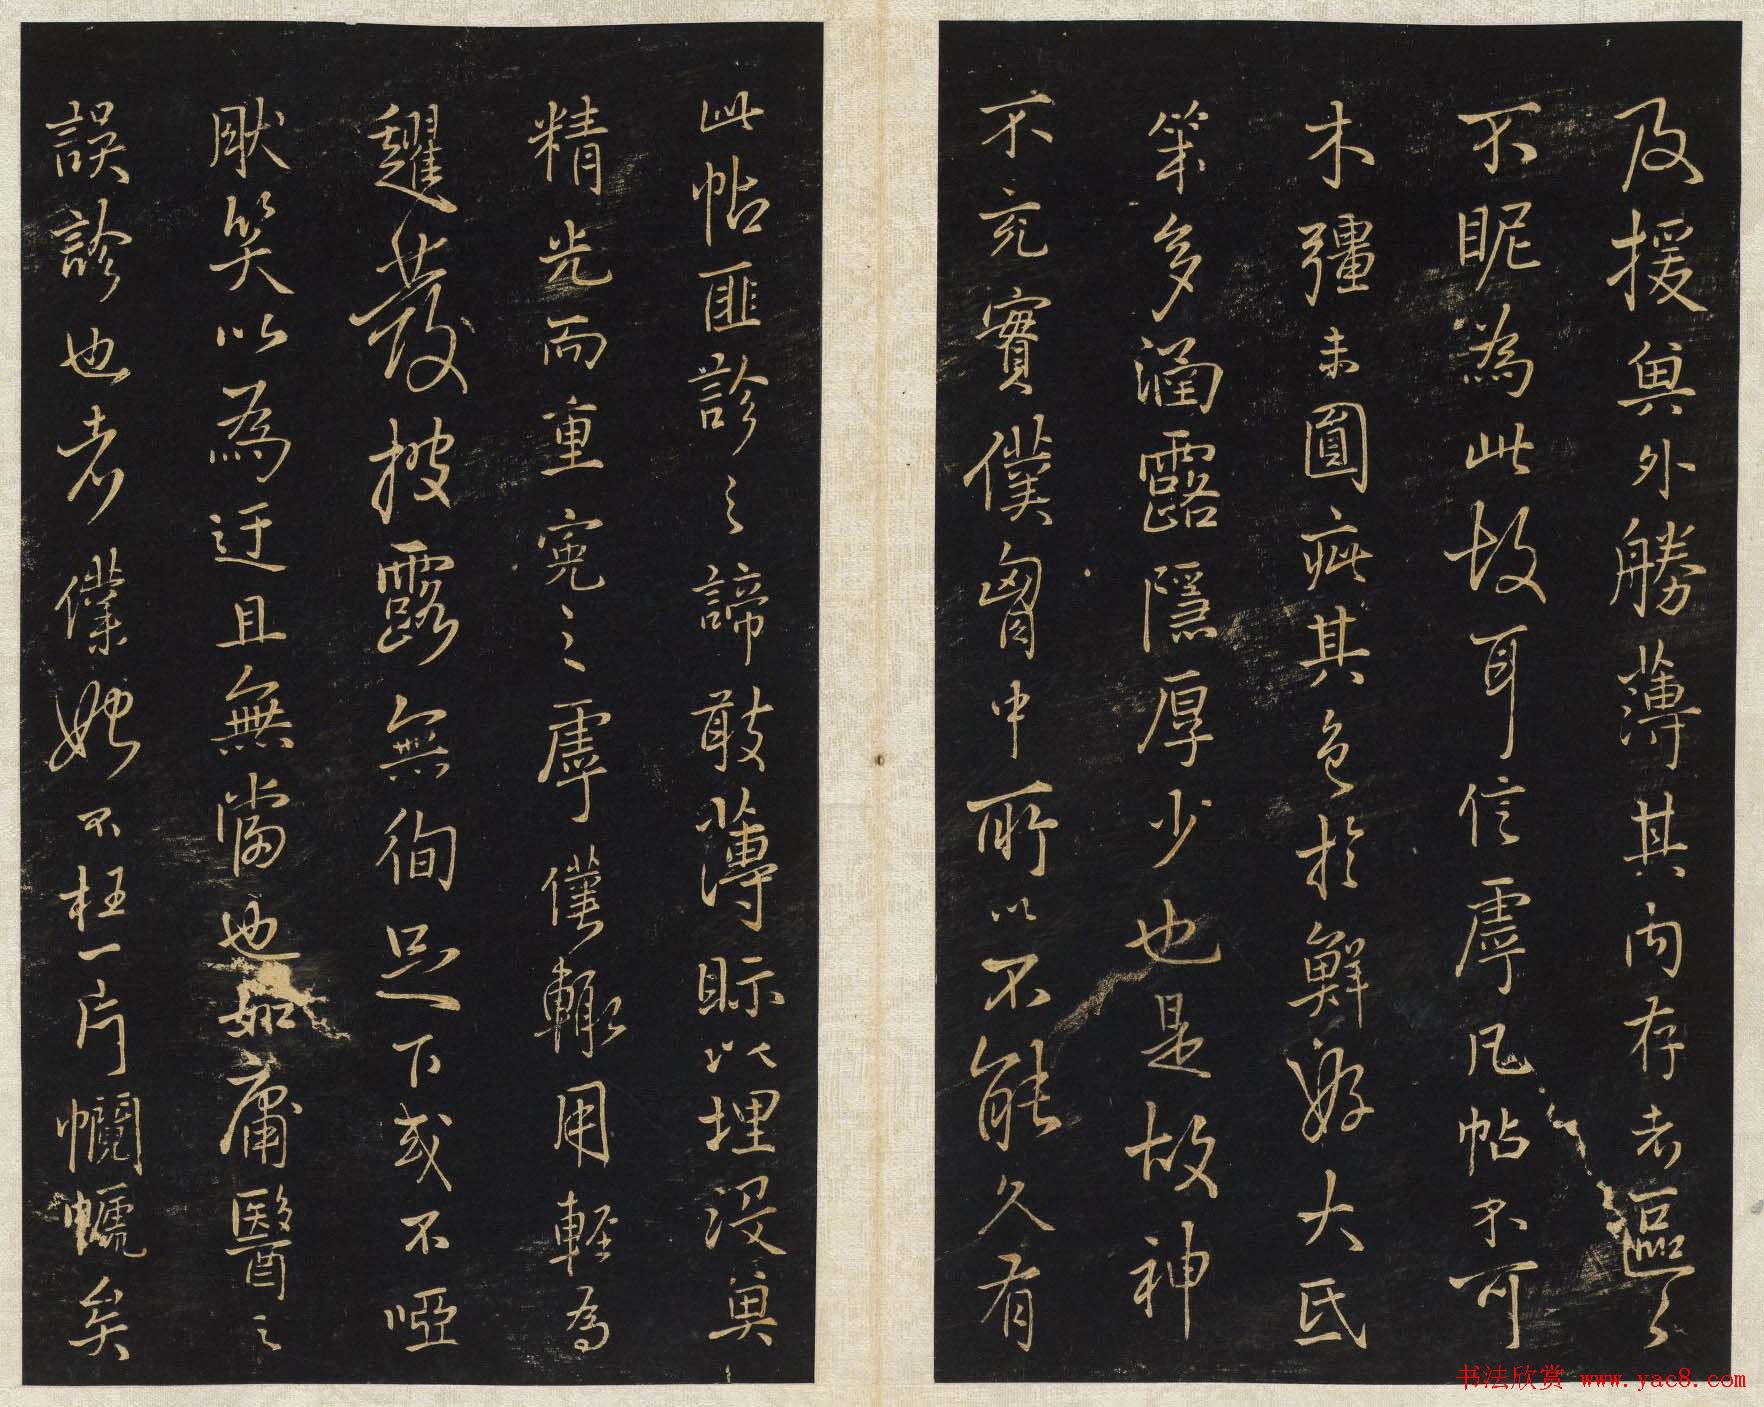 及援與外勝薄其內存者區區
不眤為此故耳信虖凡帖不可
木彊未圓疵其色於鮮好大氐
第多涵露隱厚少也是故神
不充實僕匈中所以不能久有
此帖匪診之諦敢薄眎以埋沒其
精光而重冤之虖僅輒用輕為
趯發披露無徇足下或不啞
厭笑以為迂且無當也如庸醫之
誤診也者僕始不枉一片矣
书法欣赏 www.yac8.com